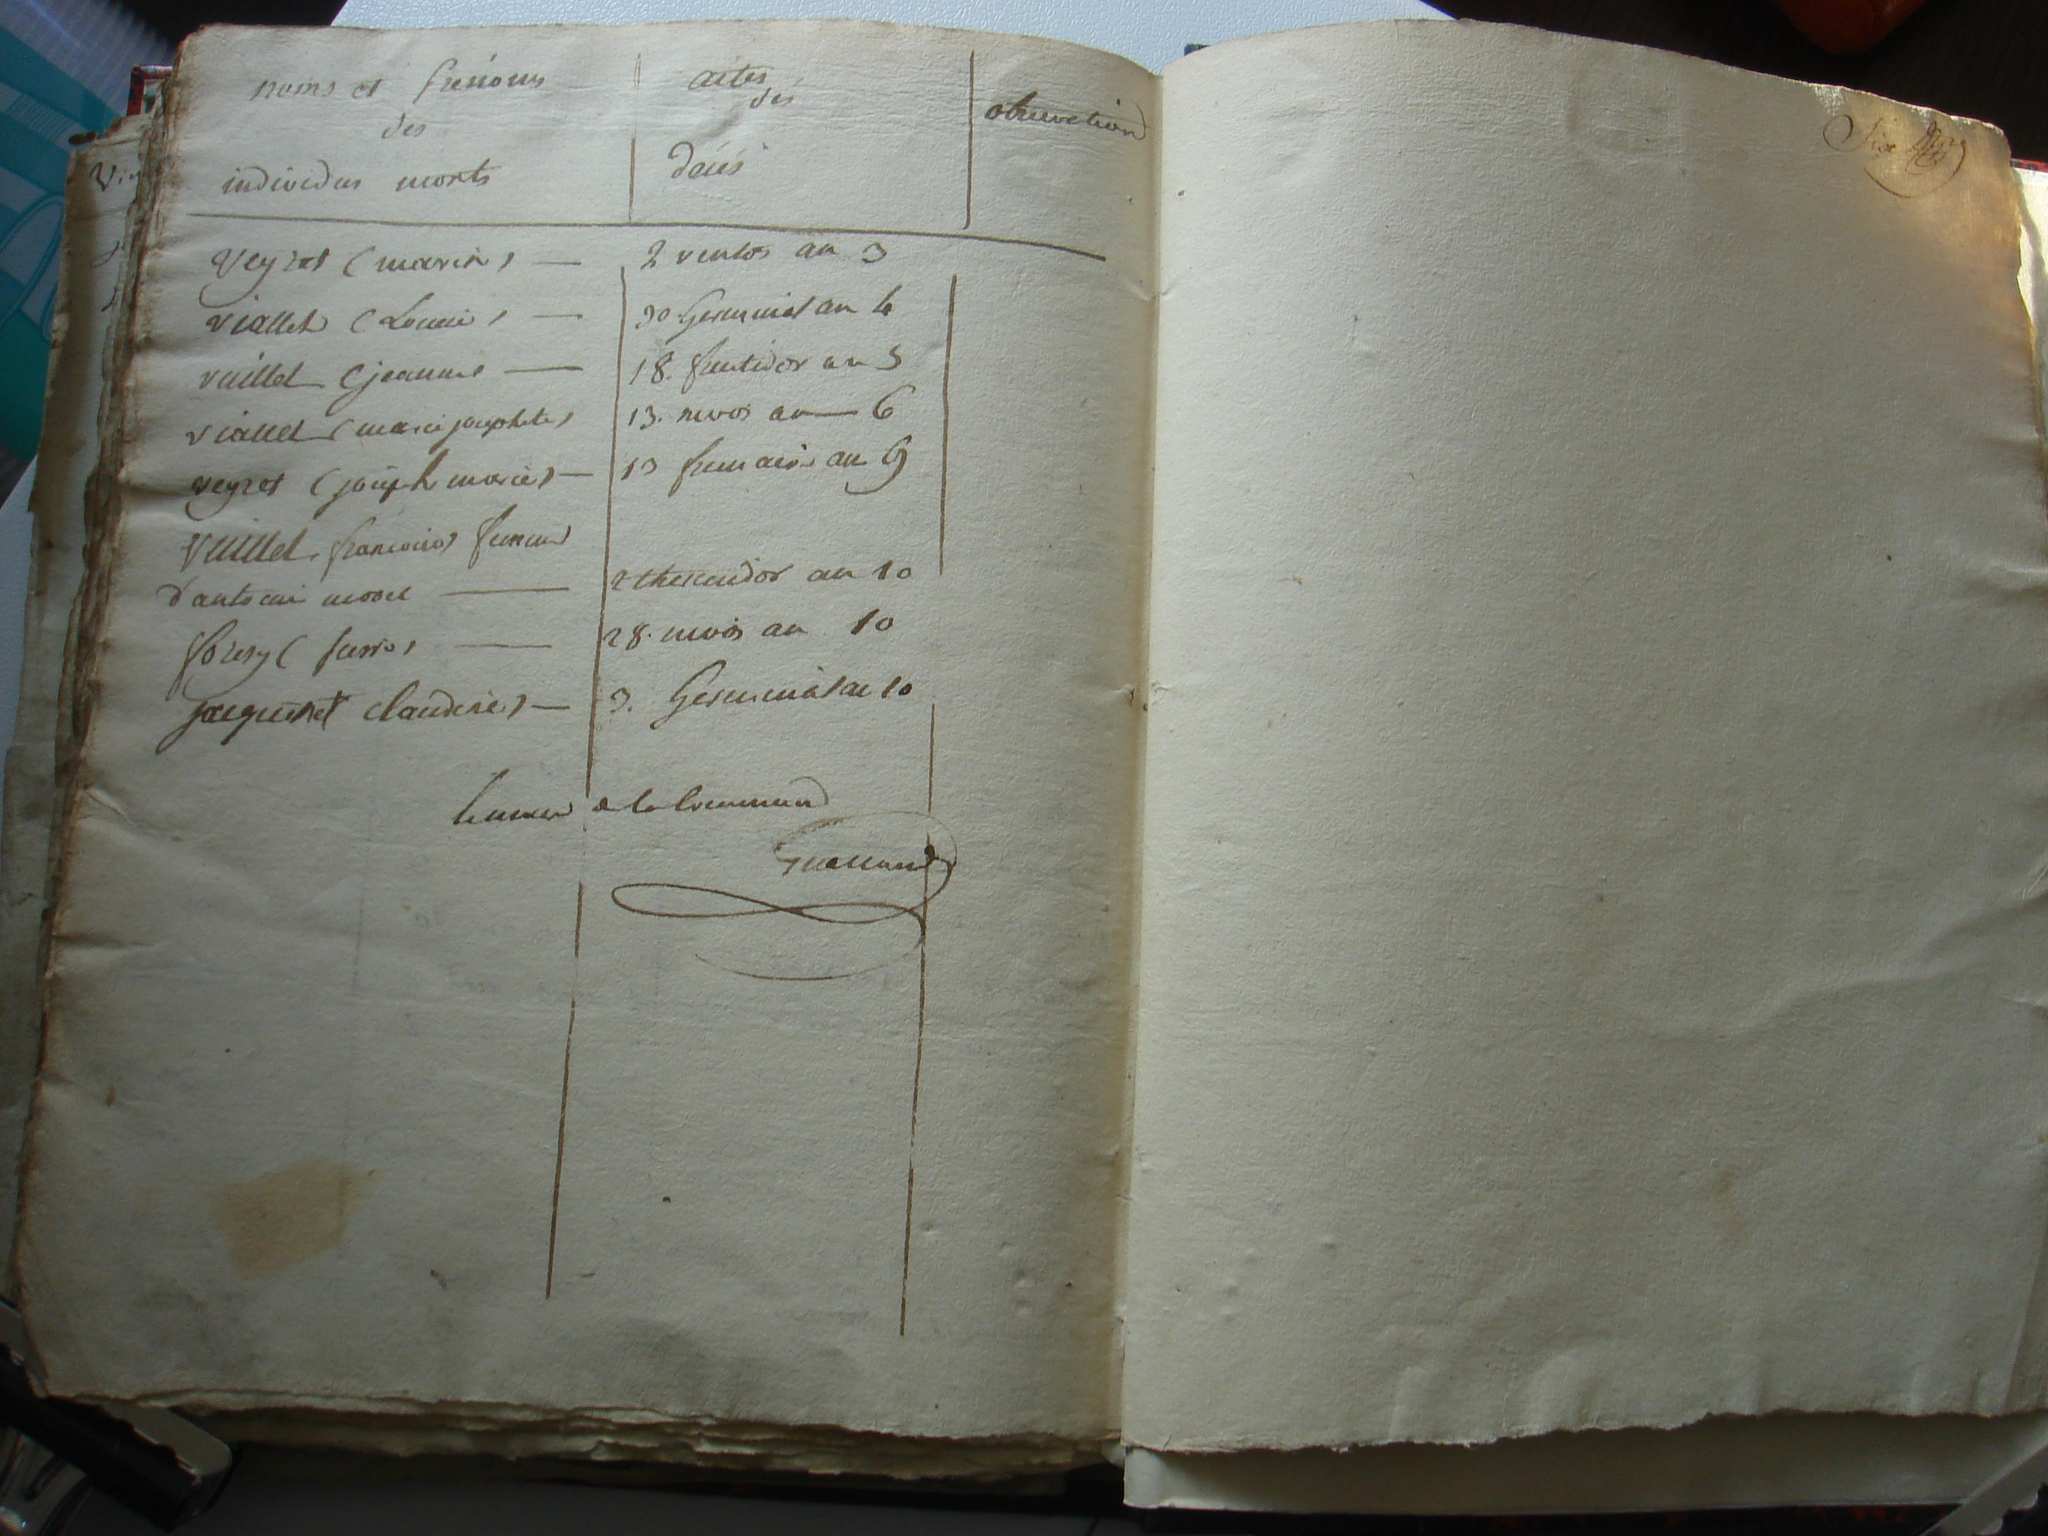 noms et prenoms
des
individus morts
actes
des
décés
observation
veyret (marie) — 2 ventos an 3
viallet (Louise) — 30 Germinal an 4
viallet (jeanne — 18. fructidor an 5
viallet (marie josephte) 13. nivos an — 6
veyret (joseph marie) — 13 frimaire an 9
viallet francoise femme
d'antoine morel — 2 thermidor an 10
28. nivos an 10
jacquemet claudine) — 3. Germinal an 10
le maire de la Commune
Six